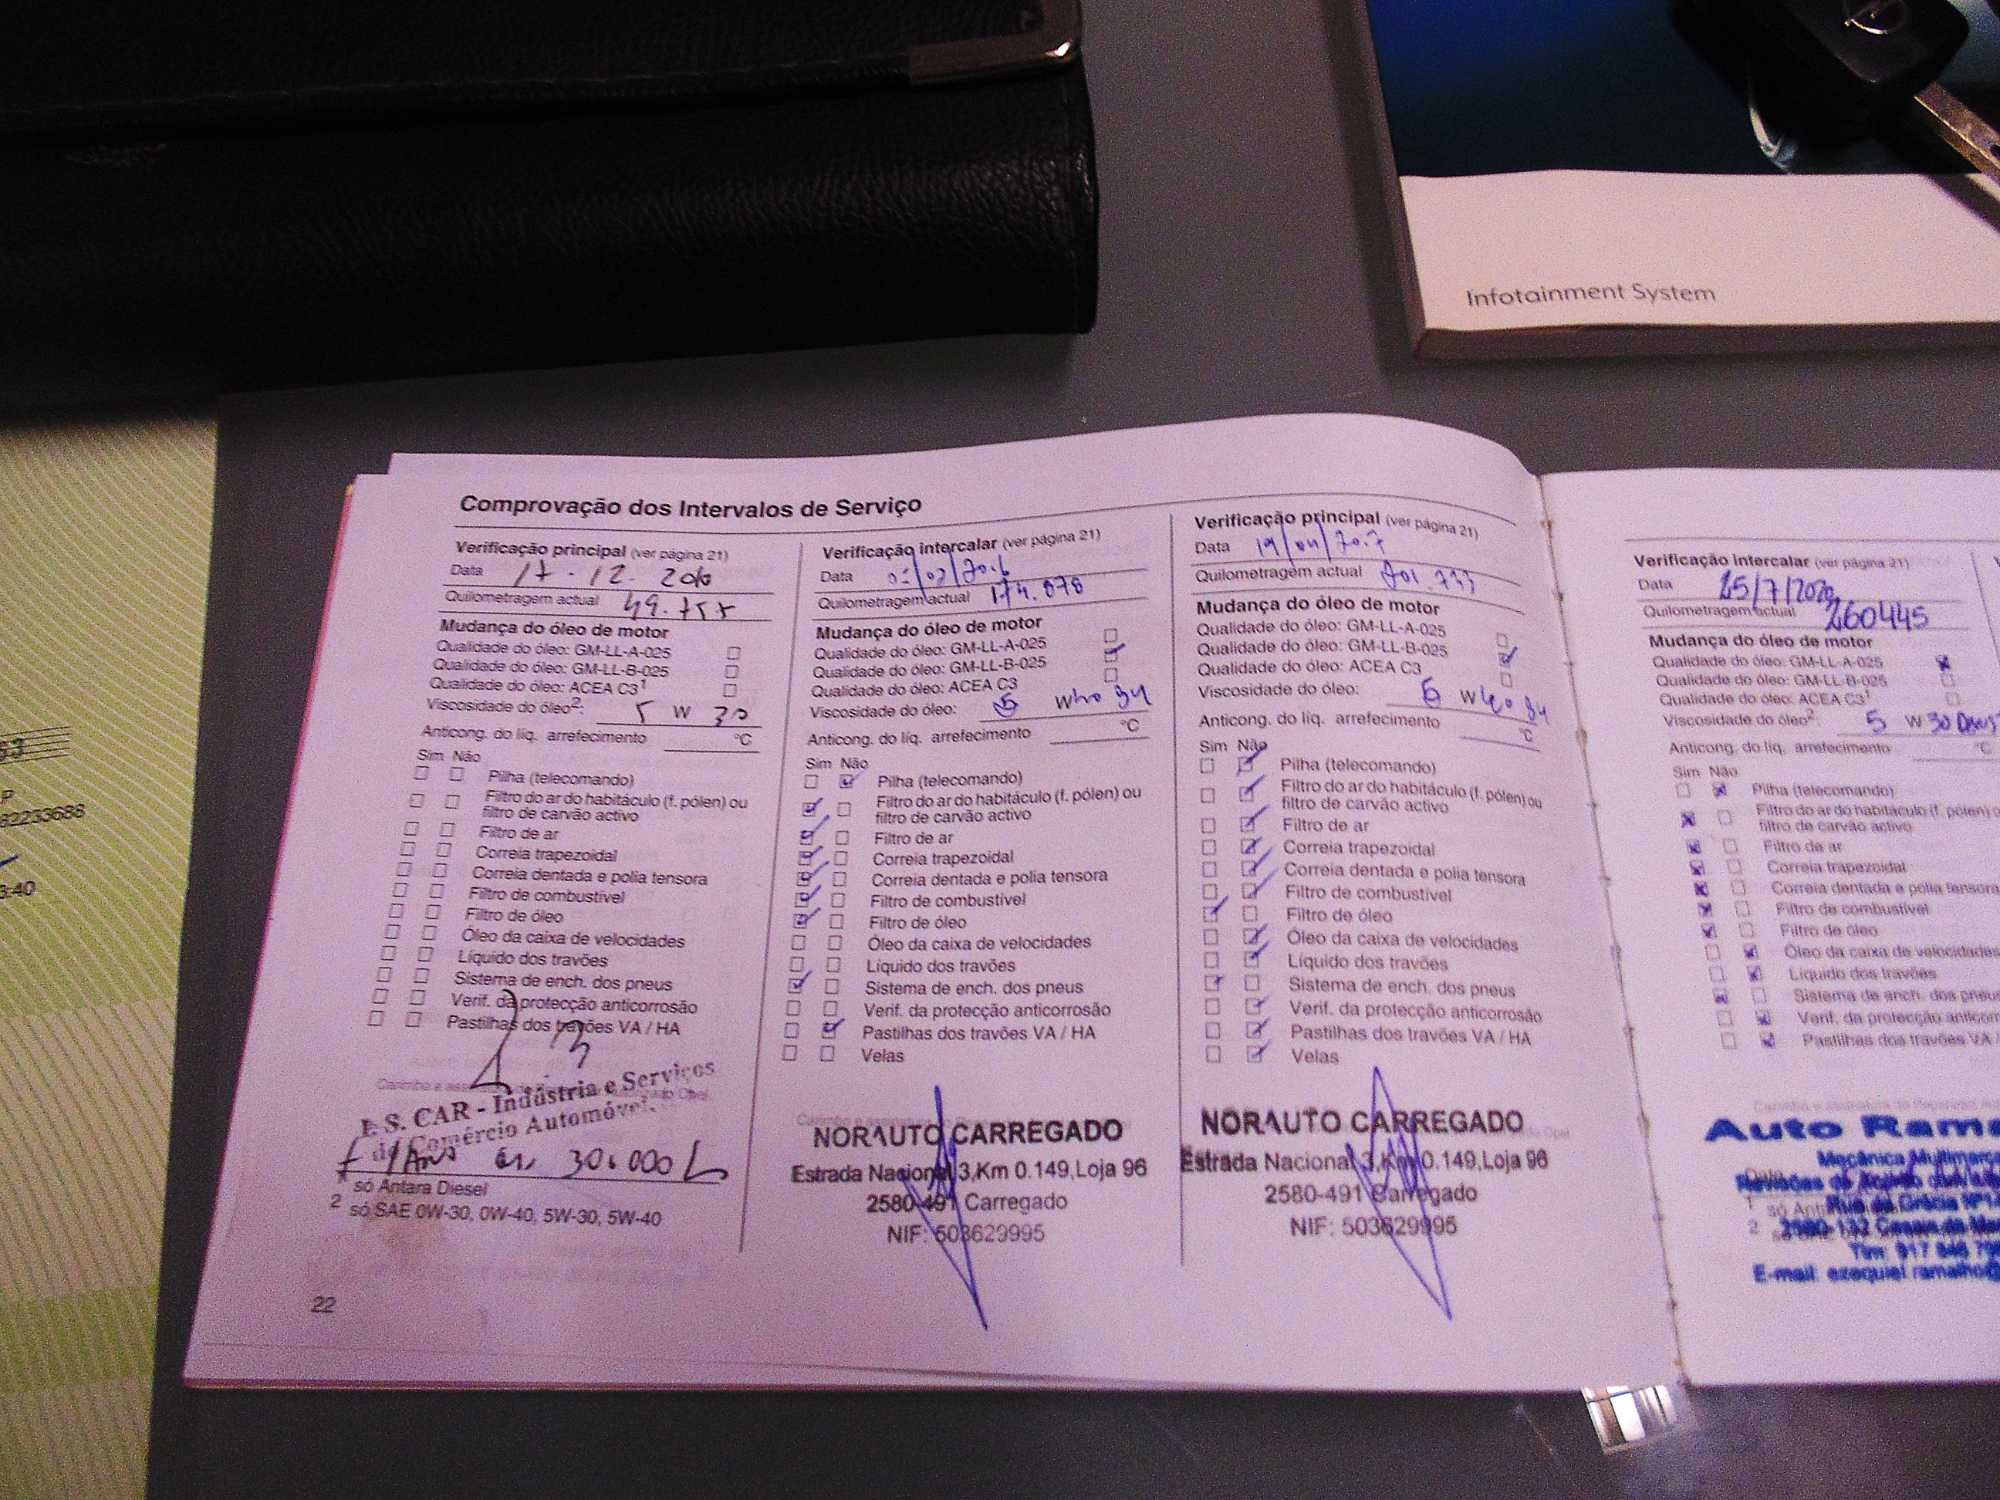 Infotainment System
82233688
3:40
Comprovação dos Intervalos de Serviço
Verificação principal (ver página 21)
Data 17-12.
Quilometragem actual
Mudança do óleo de motor
Qualidade do óleo: GM-LL-A-025
Qualidade do óleo: GM-LL-B-025
Qualidade do óleo: ACEA C3¹
Viscosidade do óleo²: 5 W 30
Anticong. do líq. arrefecimento °C
Sim Não
Pilha (telecomando)
Filtro do ar do habitáculo (f. pólen) ou
filtro de carvão activo
Filtro de ar
Correia trapezoidal
Correia dentada e polia tensora
Filtro de combustível
Filtro de óleo
Óleo da caixa de velocidades
Líquido dos travões
Sistema de ench. dos pneus
Verif. da protecção anticorrosão
Pastilhas dos travões VA / HA
S. CAR - Indústria e Serviços
Comércio Automóvel.
30.000
só Antara Diesel
2 só SAE 0W-30, 0W-40, 5W-30, 5W-40
22
Verificação intercalar (ver página 21)
Data
Quilometragem actual 174.078
Mudança do óleo de motor
Qualidade do óleo: GM-LL-A-025
Qualidade do óleo: GM-LL-B-025
Qualidade do óleo: ACEA C3
Viscosidade do óleo: 5 W40
Anticong. do líq. arrefecimento °C
Sim Não
Pilha (telecomando)
Filtro do ar do habitáculo (f. pólen) ou
filtro de carvão activo
Filtro de ar
Correia trapezoidal
Correia dentada e polia tensora
Filtro de combustível
Filtro de óleo
Óleo da caixa de velocidades
Líquido dos travões
Sistema de ench. dos pneus
Verif. da protecção anticorrosão
Pastilhas dos travões VA / HA
Velas
NORAUTO CARREGADO
Estrada Nacional 3,Km 0.149,Loja 96
2580-491 Carregado
NIF: 503629995
Verificação principal (ver página 21)
Data
Quilometragem actual
Mudança do óleo de motor
Qualidade do óleo: GM-LL-A-025
Qualidade do óleo: GM-LL-B-025
Qualidade do óleo: ACEA C3
Viscosidade do óleo: 5 W40
Anticong. do líq. arrefecimento °C
Sim Não
Pilha (telecomando)
Filtro do ar do habitáculo (f. pólen) ou
filtro de carvão activo
Filtro de ar
Correia trapezoidal
Correia dentada e polia tensora
Filtro de combustível
Filtro de óleo
Óleo da caixa de velocidades
Líquido dos travões
Sistema de ench. dos pneus
Verif. da protecção anticorrosão
Pastilhas dos travões VA / HA
Velas
NORAUTO CARREGADO
Estrada Nacional 3,Km 0.149,Loja 96
2580-491 Carregado
NIF: 503629995
Verificação intercalar (ver página 21)
Data 25/7/2020
Quilometragem actual 260445
Mudança do óleo de motor
Qualidade do óleo: GM-LL-A-025
Qualidade do óleo: GM-LL-B-025
Qualidade do óleo: ACEA C3¹
Viscosidade do óleo²: 5 W 30
Anticong. do líq. arrefecimento °C
Sim Não
Pilha (telecomando)
Filtro do ar do habitáculo (f. pólen)
filtro de carvão activo
Filtro de ar
Correia trapezoidal
Correia dentada e polia tensora
Filtro de combustível
Filtro de óleo
Óleo da caixa de velocidades
Líquido dos travões
Sistema de ench. dos pneus
Verif. da protecção anticorr
Pastilhas dos travões VA /
Auto Rama
Mecânica Multimarca
2580-132
Tlm: 917 846
E-mail: ezequiel.ramalho@